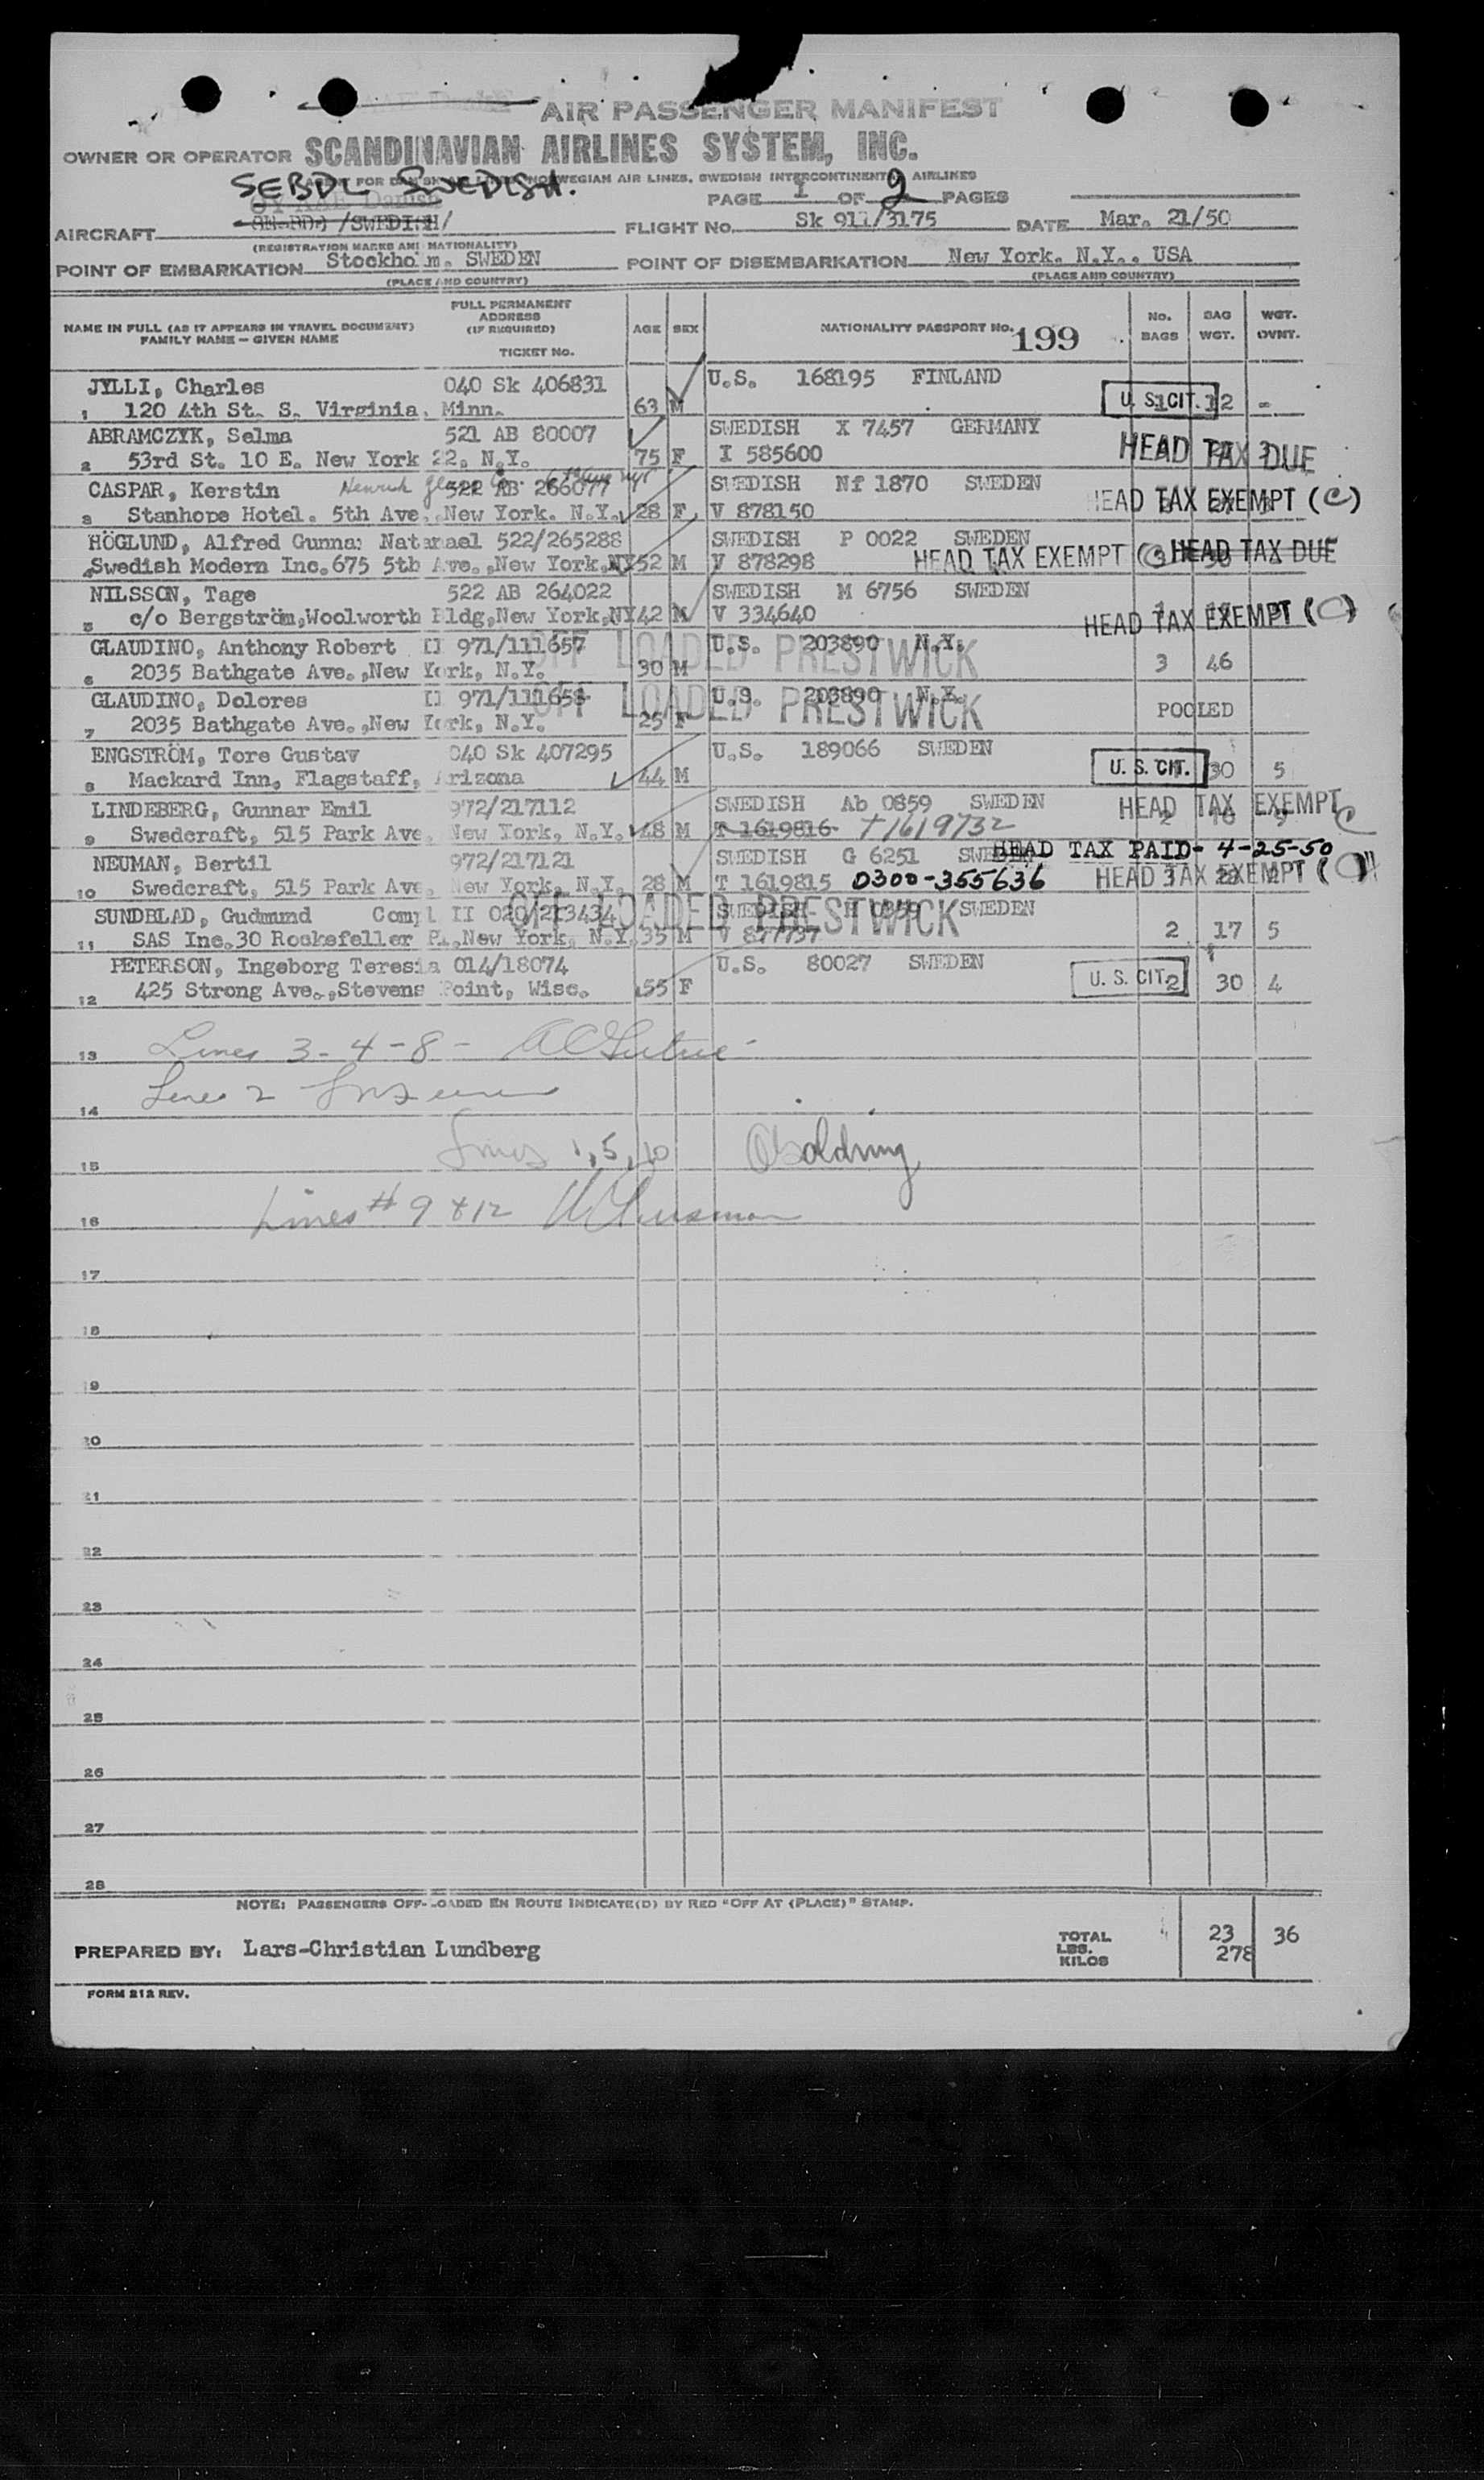 AIR PASSENGER MANIFEST
OWNER OR OPERATOR SCANDINAVIAN AIRLINES SYSTEM, INC.
AGENT FOR DANISH AIR LINES, NORWEGIAN AIR LINES, SWEDISH INTERCONTINENTAL AIRLINES
SEBDL SWEDISH.
PAGE 1 OF 2 PAGES
OY-AAE Danish
AIRCRAFT /SWEDISH/ FLIGHT NO. Sk 911/3175 DATE Mar. 21/50
(REGISTRATION MARKS AND NATIONALITY)
POINT OF EMBARKATION Stockholm. SWEDEN POINT OF DISEMBARKATION New York. N.Y.. USA
(PLACE AND COUNTRY) (PLACE AND COUNTRY)
NAME IN FULL (AS IT APPEARS IN TRAVEL DOCUMENT) FAMILY NAME – GIVEN NAME FULL PERMANENT ADDRESS (IF REQUIRED) TICKET No. AGE SEX NATIONALITY PASSPORT NO. 199 No. BAGS BAG WGT. WGT. OVWT.
JYLLI, Charles 040 Sk 406831 U.S. 168195 FINLAND
1 120 4th St. S. Virginia, Minn. 63 M U. S. CIT. 12 -
ABRAMCZYK, Selma 521 AB 80007 SWEDISH X 7457 GERMANY
2 53rd St. 10 E. New York 22. N.Y. 75 F I 585600 HEAD TAX DUE
CASPAR, Kerstin 522 AB 266077 SWEDISH Nf 1870 SWEDEN
3 Stanhope Hotel. 5th Ave. New York. N.Y. 28 F V 878150 HEAD TAX EXEMPT (C)
HÖGLUND, Alfred Gunnar Natanael 522/265288 SWEDISH P 0022 SWEDEN
4 Swedish Modern Inc. 675 5th Ave., New York, NY 52 M V 878298 HEAD TAX EXEMPT (C) HEAD TAX DUE
NILSSON, Tage 522 AB 264022 SWEDISH M 6756 SWEDEN
5 c/o Bergström, Woolworth Bldg, New York, NY 42 M V 334640 HEAD TAX EXEMPT (C)
GLAUDINO, Anthony Robert II 971/111657 U.S. 203890 N.Y.
OFF LOADED PRESTWICK
6 2035 Bathgate Ave., New York, N.Y. 30 M 3 46
GLAUDINO, Dolores II 971/111658 U.S. 203890 N.Y.
OFF LOADED PRESTWICK
7 2035 Bathgate Ave., New York, N.Y. 25 F POOLED
ENGSTRÖM, Tore Gustav 040 Sk 407295 U.S. 189066 SWEDEN
8 Mackard Inn, Flagstaff, Arizona 44 M U. S. CIT. 30 5
LINDEBERG, Gunnar Emil 972/217112 SWEDISH Ab 0859 SWEDEN HEAD TAX EXEMPT C
9 Swedcraft, 515 Park Ave, New York, N.Y. 48 M T 1619816 T1619732
NEUMAN, Bertil 972/217121 SWEDISH G 6251 SWEDEN HEAD TAX PAID- 4-25-50
10 Swedcraft, 515 Park Ave, New York, N.Y. 28 M T 1619815 0300-355636 HEAD TAX EXEMPT (C)
SUNDBLAD, Gudmund Compl II 020/213434 SWEDISH SWEDEN
OFF LOADED PRESTWICK
11 SAS Inc. 30 Rockefeller Pl, New York, N.Y. 35 M V 877737 2 17 5
PETERSON, Ingeborg Teresia 014/18074 U.S. 80027 SWEDEN
12 425 Strong Ave., Stevens Point, Wisc. 55 F U. S. CIT. 2 30 4
13 Lines 3-4-8-
14 Lines 2
15 Lines 1, 5, 10 Goldring
16 Lines # 9 + 12
17
18
19
20
21
22
23
24
25
26
27
28
NOTE: PASSENGERS OFF-LOADED EN ROUTE INDICATE(D) BY RED "OFF AT (PLACE)" STAMP.
PREPARED BY: Lars-Christian Lundberg TOTAL LBS. KILOS 23 278 36
FORM 212 REV.